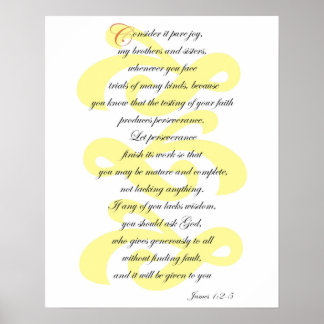 Consider it pure joy,
my brothers and sisters,
whenever you face
trials of many kinds, because
you know that the testing of your faith
produces perseverance.
Let perseverance
finish its work so that
you may be mature and complete,
not lacking anything.
If any of you lacks wisdom,
you should ask God,
who gives generously to all
without finding fault,
and it will be given to you
James 1:2-5